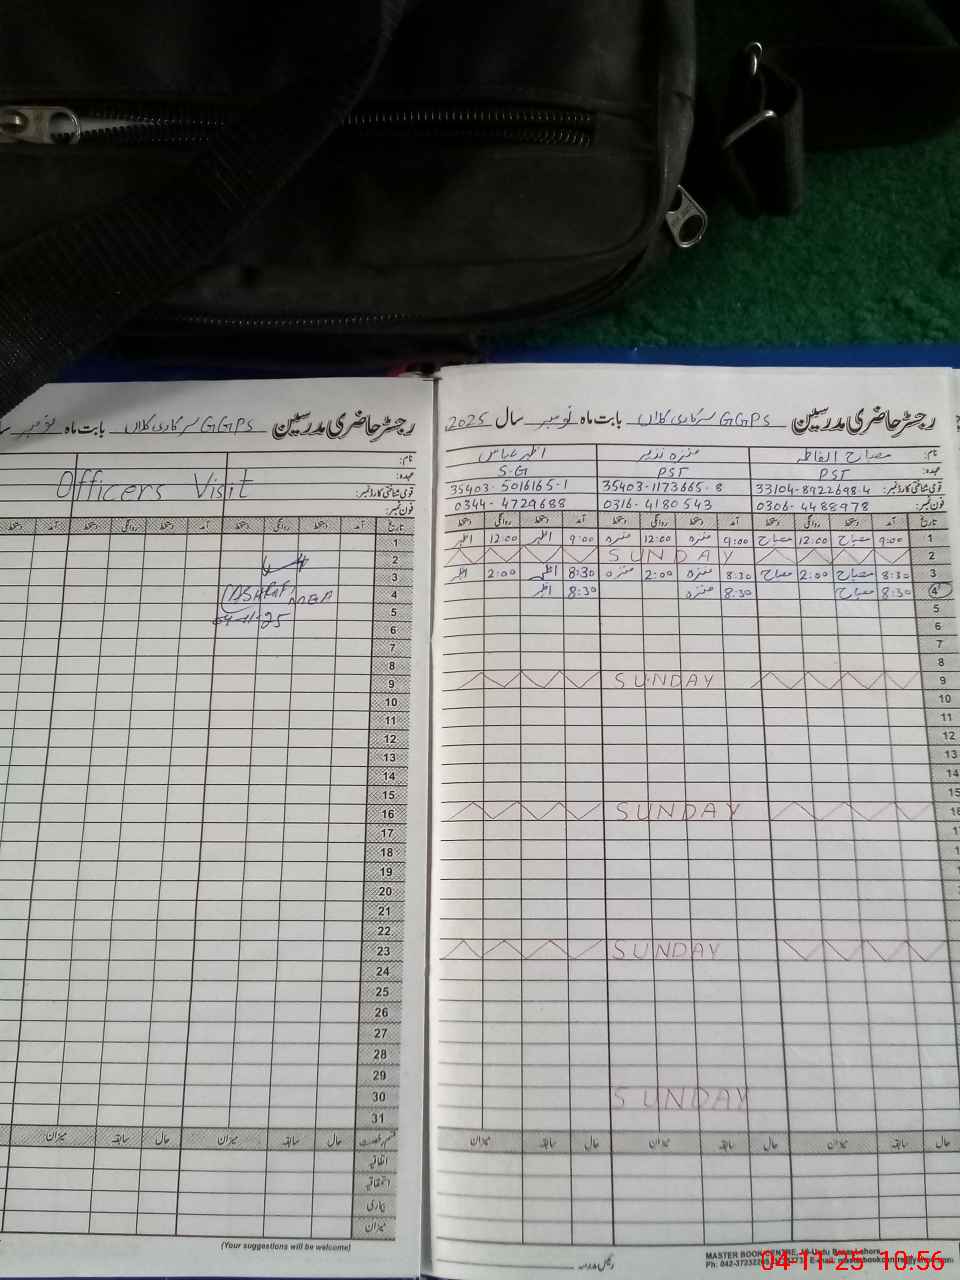 رجسٹر حاضری مدرسین GGPS سرکاری کلاں بابت ماہ نومبر
نام:
عہدہ:
Officers Visit
قومی شناختی کارڈ نمبر:
فون نمبر:
تاریخ آمد دستخط روانگی دستخط آمد دستخط روانگی دستخط آمد
1
2
3
4
5
6
7
8
9
10
11
12
13
14
15
16
17
18
19
20
21
22
23
24
25
26
27
28
29
30
31
04-11-25
قسم رخصت حال سابقہ میزان حال سابقہ میزان
اتفاقیہ
استحقاقیہ
بیماری
میزان
(Your suggestions will be welcome)
رجسٹر حاضری مدرسین GGPS سرکاری کلاں بابت ماہ نومبر سال 2025
نام: مصباح الفاطمہ منزہ نذیر اظہر عباس
عہدہ: PST PST S-G
قومی شناختی کارڈ نمبر: 33104-8922698-4 35403-1173665-8 35403-5016165-1
فون نمبر: 0306-4488978 0316-4180543 0344-4729688
تاریخ آمد دستخط روانگی دستخط آمد دستخط روانگی دستخط آمد دستخط روانگی دستخط
1 9:00 مصباح 12:00 مصباح 9:00 منزہ 12:00 منزہ 9:00 اظہر 12:00 اظہر
2 SUNDAY
3 8:30 مصباح 2:00 مصباح 8:30 منزہ 2:00 منزہ 8:30 اظہر 2:00 اظہر
4 8:30 مصباح 8:30 منزہ 8:30 اظہر
5
6
7
8
9 SUNDAY
10
11
12
13
14
15
16 SUNDAY
17
SUNDAY
SUNDAY
حال سابقہ میزان حال سابقہ میزان
MASTER BOOK CENTRE
04-11-25 10:56